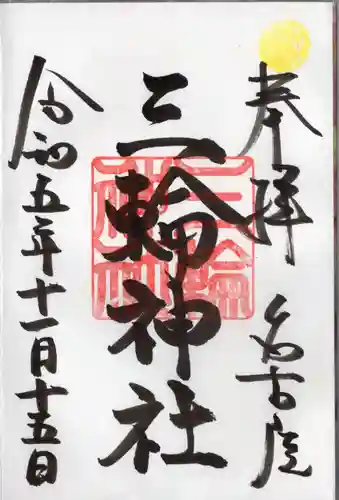 奉拝
名古屋
三輪神社
令和五年十一月十五日